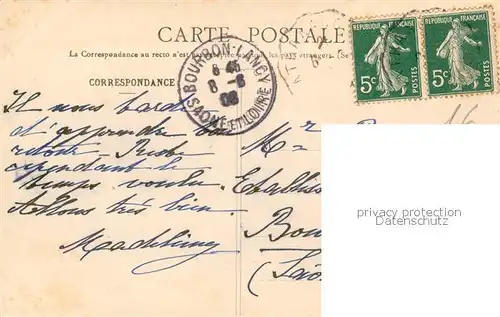 CARTE POSTALE
La Correspondance au recto n'est pas
les pays étrangers. (Se
CORRESPONDANCE
BOURBON-LANCY
8 45
8 - 8
08
SAONE-ET-LOIRE
RÉPUBLIQUE FRANÇAISE
5c
POSTES
RÉPUBLIQUE FRANÇAISE
5c
POSTES
Il nous tarde
d'apprendre
retour
cependant le
temps voulu.
Allons très bien.
M
Etabliss
Bou
(Saô
16
privacy protection